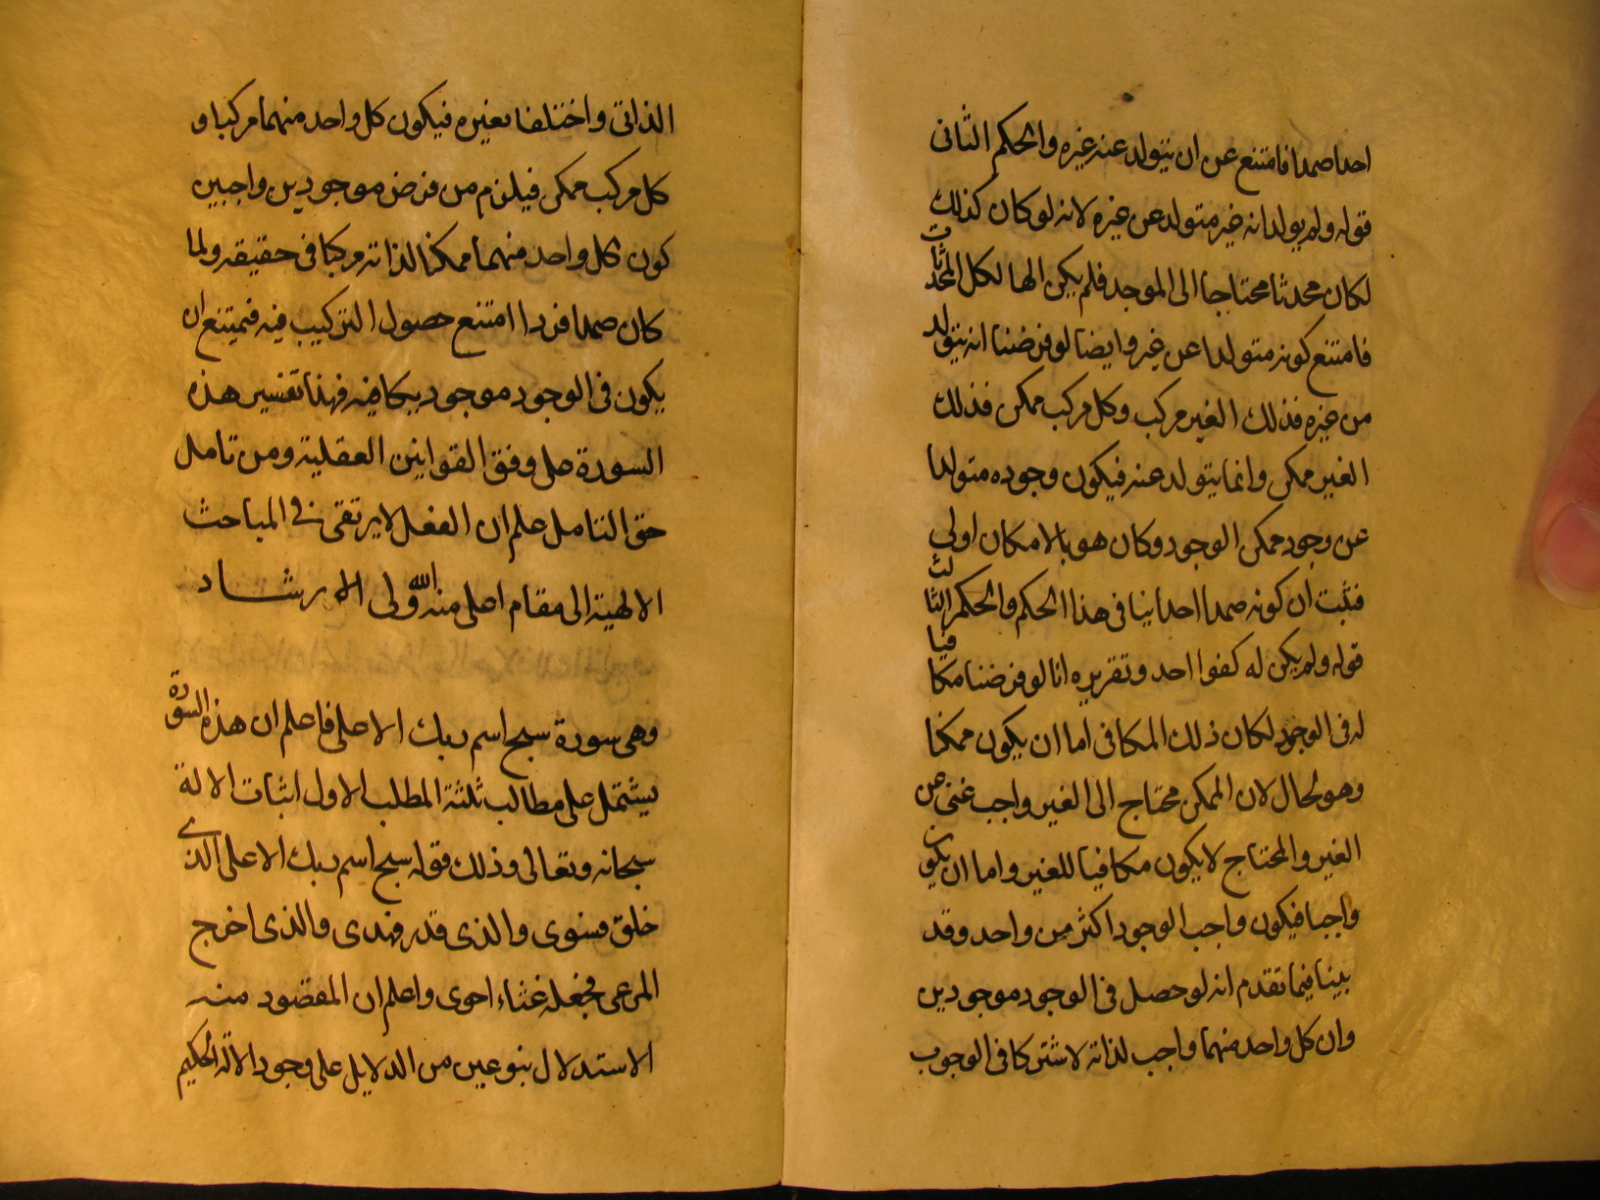 احدا صمدا فامتنع عن ان يتولد عنه غيره والحكم الثانى
قوله ولم يولد انه غير متولد عن غيره لانه لو كان كذلك
لكان محدثا محتاجا الى الموجد فلم يكن الها لكل المحدثات
فامتنع كونه متولدا عن غيره وايضا لو فرضنا انه يتولد
من غيره فذلك الغير مركب وكل مركب ممكن فذلك
الغير ممكن وانما يتولد عنه فيكون وجوده متولدا
عن وجود ممكن الوجود وكان هو بالامكان اولى
فثبت ان كونه صمدا احدا ينافى هذا الحكم والحكم الثالث
قوله ولم يكن له كفوا احد وتقريره انا لو فرضنا مكافيا
له فى الوجود لكان ذلك المكافى اما ان يكون ممكنا
وهو محال لان الممكن محتاج الى الغير واجب غنى عن
الغير والمحتاج لا يكون مكافيا للغير واما ان يكون
واجبا فيكون واجب الوجود اكثر من واحد وقد
بينا فيما تقدم انه لو حصل فى الوجود موجودين
وان كل واحد منهما واجب لذاته لاشتركا فى الوجوب
الذاتى واختلفا بغيره فيكون كل واحد منهما مركبا و
كل مركب ممكن فيلزم من فرض موجودين واجبين
كون كل واحد منهما ممكنا لذاته مركبا فى حقيقته ولما
كان صمدا فردا امتنع حصول التركيب فيه فيمتنع ان
يكون فى الوجود موجود يكافيه فهذا تفسير هذه
السورة على وفق القوانين العقلية ومن تامل
حق التامل علم ان العقل لا يرتقى فى المباحث
الالهية الى مقام اعلى منه والله ولى الارشاد
وهى سورة سبح اسم ربك الاعلى فاعلم ان هذه السورة
يشتمل على مطالب ثلثة المطلب الاول اثبات الالة
سبحانه وتعالى وذلك قوله سبح اسم ربك الاعلى الذى
خلق فسوى والذى قدر فهدى والذى اخرج
المرعى فجعله غثاء احوى واعلم ان المقصود منه
الاستدلال بنوعين من الدلايل على وجود الاله الحكيم